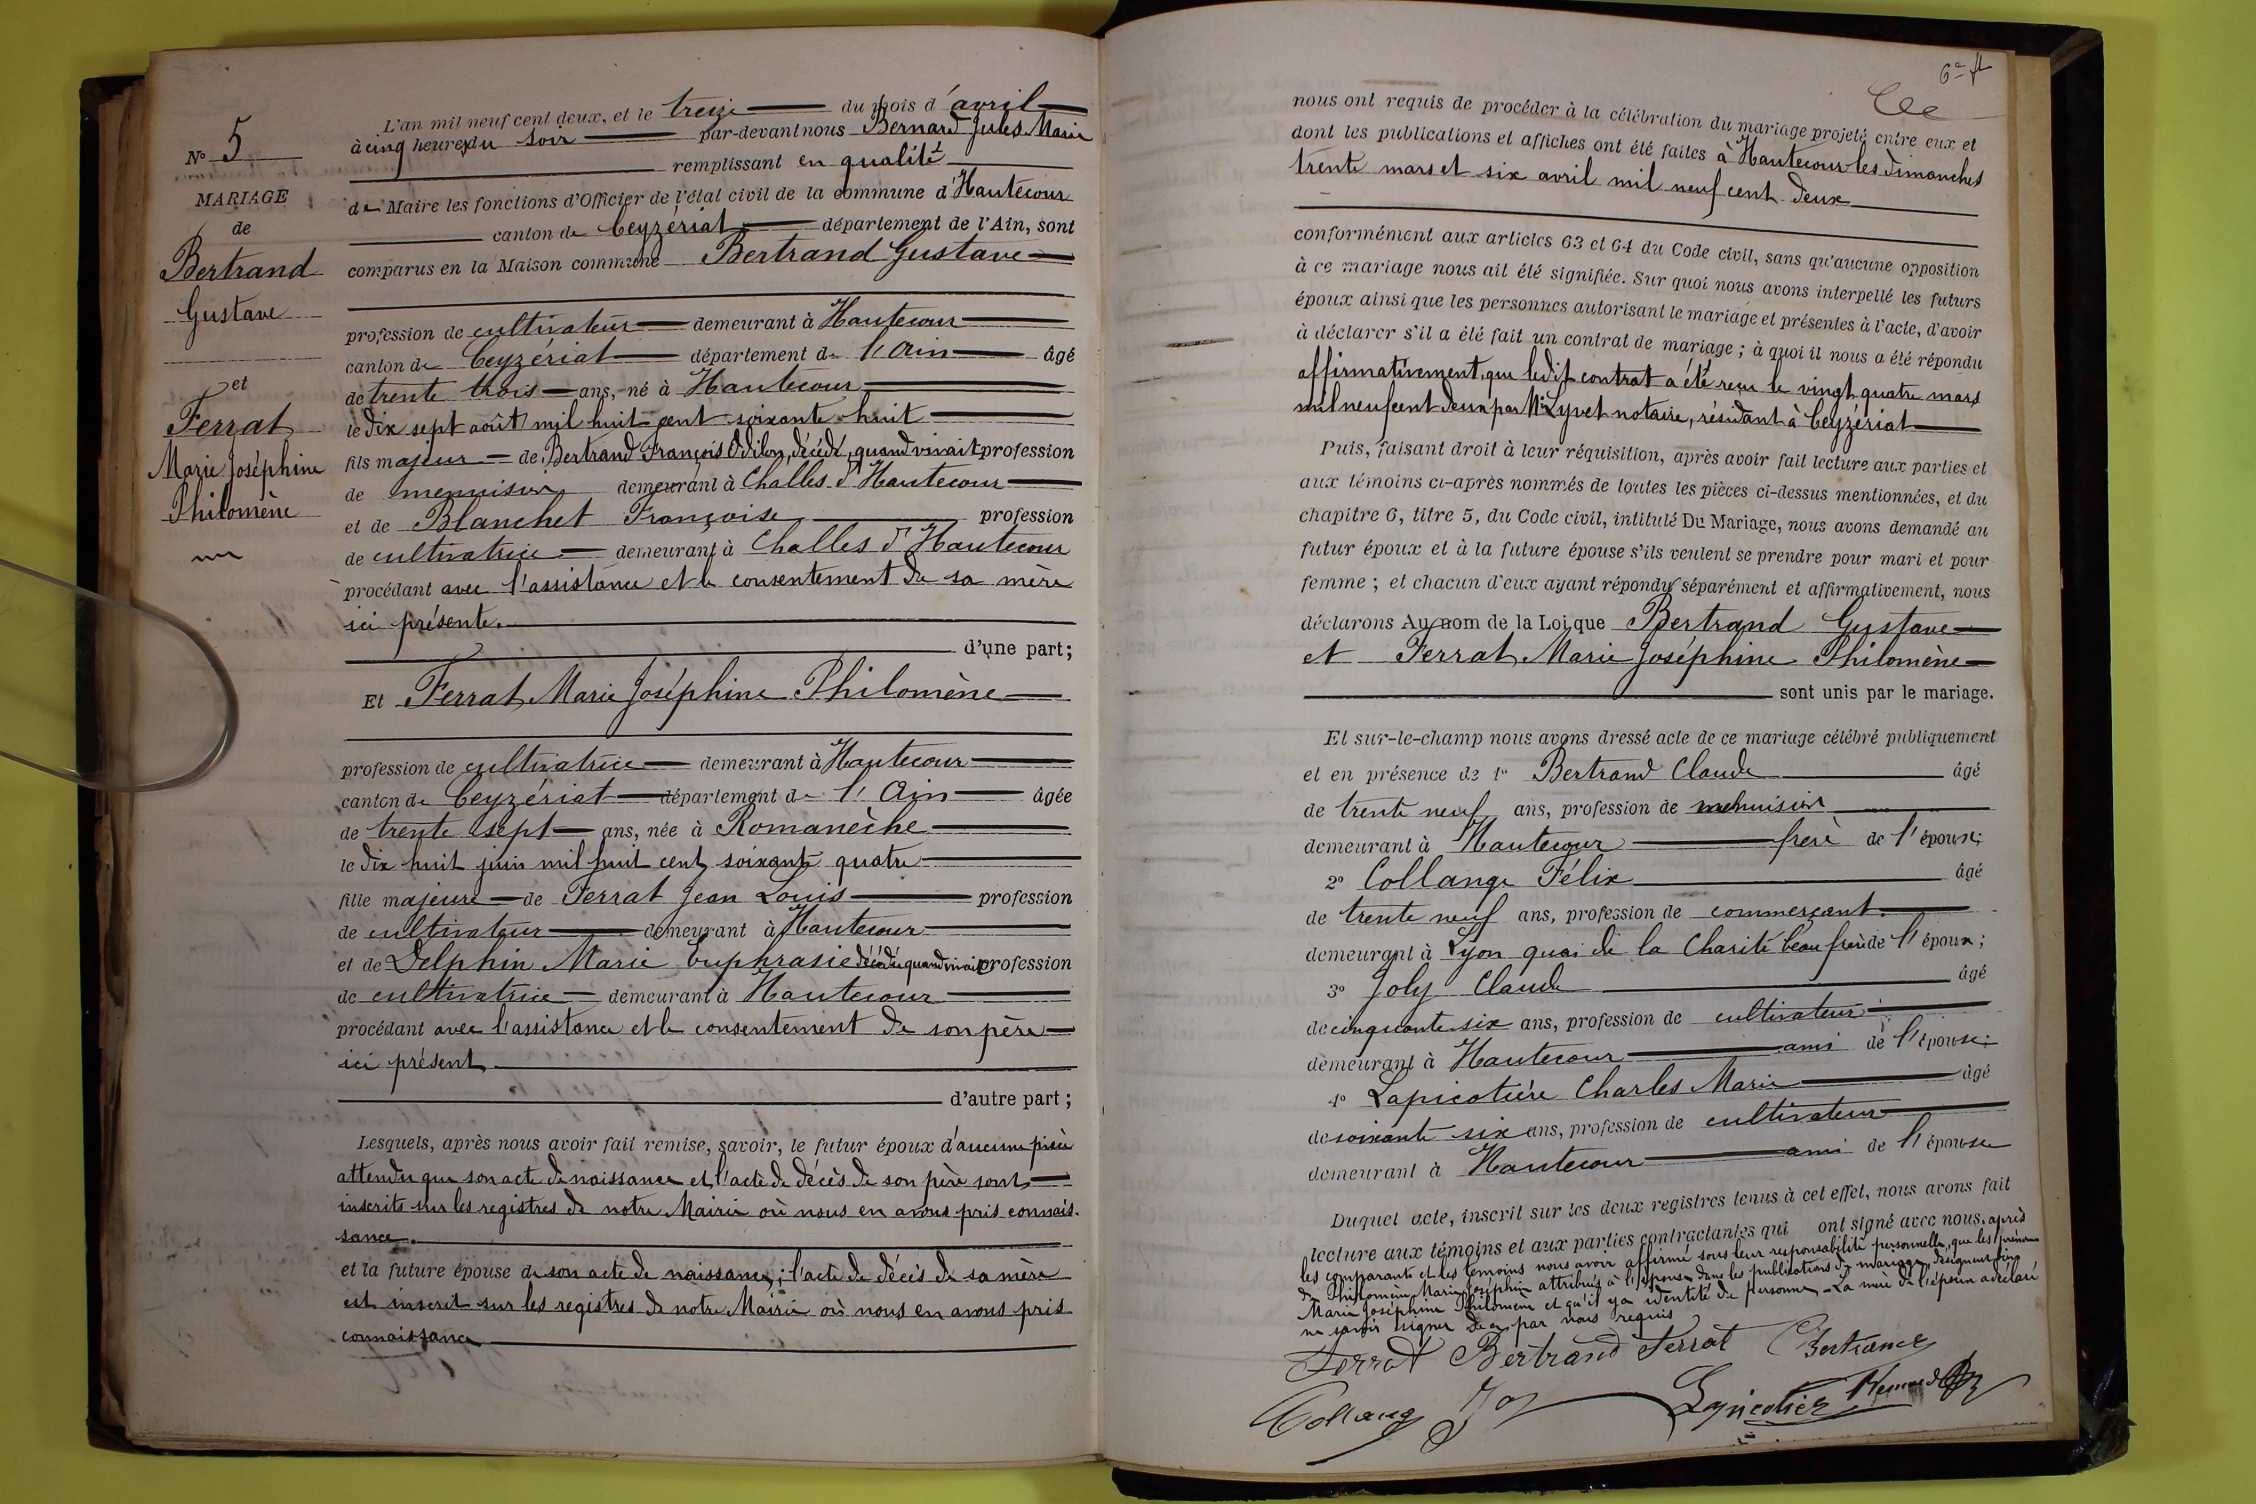 N° 5
MARIAGE
de
Bertrand
Gustave
et
Ferrat
Marie Joséphine
Philomène
L'an mil neuf cent deux, et le treize du mois d'avril
à cinq heures du soir par-devant nous Bernard Jules Marie
remplissant en qualité
de Maire les fonctions d'Officier de l'état civil de la commune d'Hautecour
canton de Ceyzériat département de l'Ain, sont
comparus en la Maison commune Bertrand Gustave
profession de cultivateur demeurant à Hautecour
canton de Ceyzériat département de l'Ain âgé
de trente trois ans, né à Hautecour
le dix sept août mil huit cent soixante huit
fils majeur de Bertrand François Odilon, décédé, quand vivait profession
de menuisier demeurant à Challes d'Hautecour
et de Blanchet Françoise profession
de cultivatrice demeurant à Challes d'Hautecour
procédant avec l'assistance et le consentement de sa mère
ici présente.
d'une part;
Et Ferrat Marie Joséphine Philomène
profession de cultivatrice demeurant à Hautecour
canton de Ceyzériat département de l'Ain âgée
de trente sept ans, née à Romanèche
le dix huit juin mil huit cent soixante quatre
fille majeure de Ferrat Jean Louis profession
de cultivateur demeurant à Hautecour
et de Delphin Marie Euphrasie décédée quand vivait profession
de cultivatrice demeurant à Hautecour
procédant avec l'assistance et le consentement de son père
ici présent
d'autre part;
Lesquels, après nous avoir fait remise, savoir, le futur époux d'aucune pièce
attendu que son acte de naissance et l'acte de décès de son père sont
inscrits sur les registres de notre Mairie où nous en avons pris connais-
sance.
et la future épouse de son acte de naissance; l'acte de décès de sa mère
est inscrit sur les registres de notre Mairie où nous en avons pris
connaissance
nous ont requis de procéder à la célébration du mariage projeté entre eux et
dont les publications et affiches ont été faites à Hautecour les dimanches
trente mars et six avril mil neuf cent deux
conformément aux articles 63 et 64 du Code civil, sans qu'aucune opposition
à ce mariage nous ait été signifiée. Sur quoi nous avons interpellé les futurs
époux ainsi que les personnes autorisant le mariage et présentes à l'acte, d'avoir
à déclarer s'il a été fait un contrat de mariage; à quoi il nous a été répondu
affirmativement, que ledit contrat a été reçu le vingt quatre mars
mil neuf cent deux par Me Lyvet notaire, résidant à Ceyzériat
Puis, faisant droit à leur réquisition, après avoir fait lecture aux parties et
aux témoins ci-après nommés de toutes les pièces ci-dessus mentionnées, et du
chapitre 6, titre 5, du Code civil, intitulé Du Mariage, nous avons demandé au
futur époux et à la future épouse s'ils veulent se prendre pour mari et pour
femme; et chacun d'eux ayant répondu séparément et affirmativement, nous
déclarons Au nom de la Loi que Bertrand Gustave
et Ferrat Marie Joséphine Philomène
sont unis par le mariage.
Et sur-le-champ nous avons dressé acte de ce mariage célébré publiquement
et en présence de 1° Bertrand Claude âgé
de trente neuf ans, profession de menuisier
demeurant à Hautecour frère de l'époux;
2° Collange Félix âgé
de trente neuf ans, profession de commerçant
demeurant à Lyon quai de la Charité beau frère de l'époux;
3° Joly Claude âgé
de cinquante six ans, profession de cultivateur
demeurant à Hautecour ami de l'épouse;
4° Lapicotière Charles Marie âgé
de soixante six ans, profession de cultivateur
demeurant à Hautecour ami de l'épouse
Duquel acte, inscrit sur les deux registres tenus à cet effet, nous avons fait
lecture aux témoins et aux parties contractantes qui ont signé avec nous, après
les comparants et les témoins nous avoir affirmé sous leur responsabilité personnelle, que les prénoms
de Philomène Marie Joséphine attribués à l'épouse dans les publications de mariage, désignent bien
Marie Joséphine Philomène et qu'il y a identité de personne - La mère de l'époux a déclaré
ne savoir signer de ce par nous requis
Ferrat Bertrand Ferrat Bertrand
Collange Joly Lapicotière Bernard